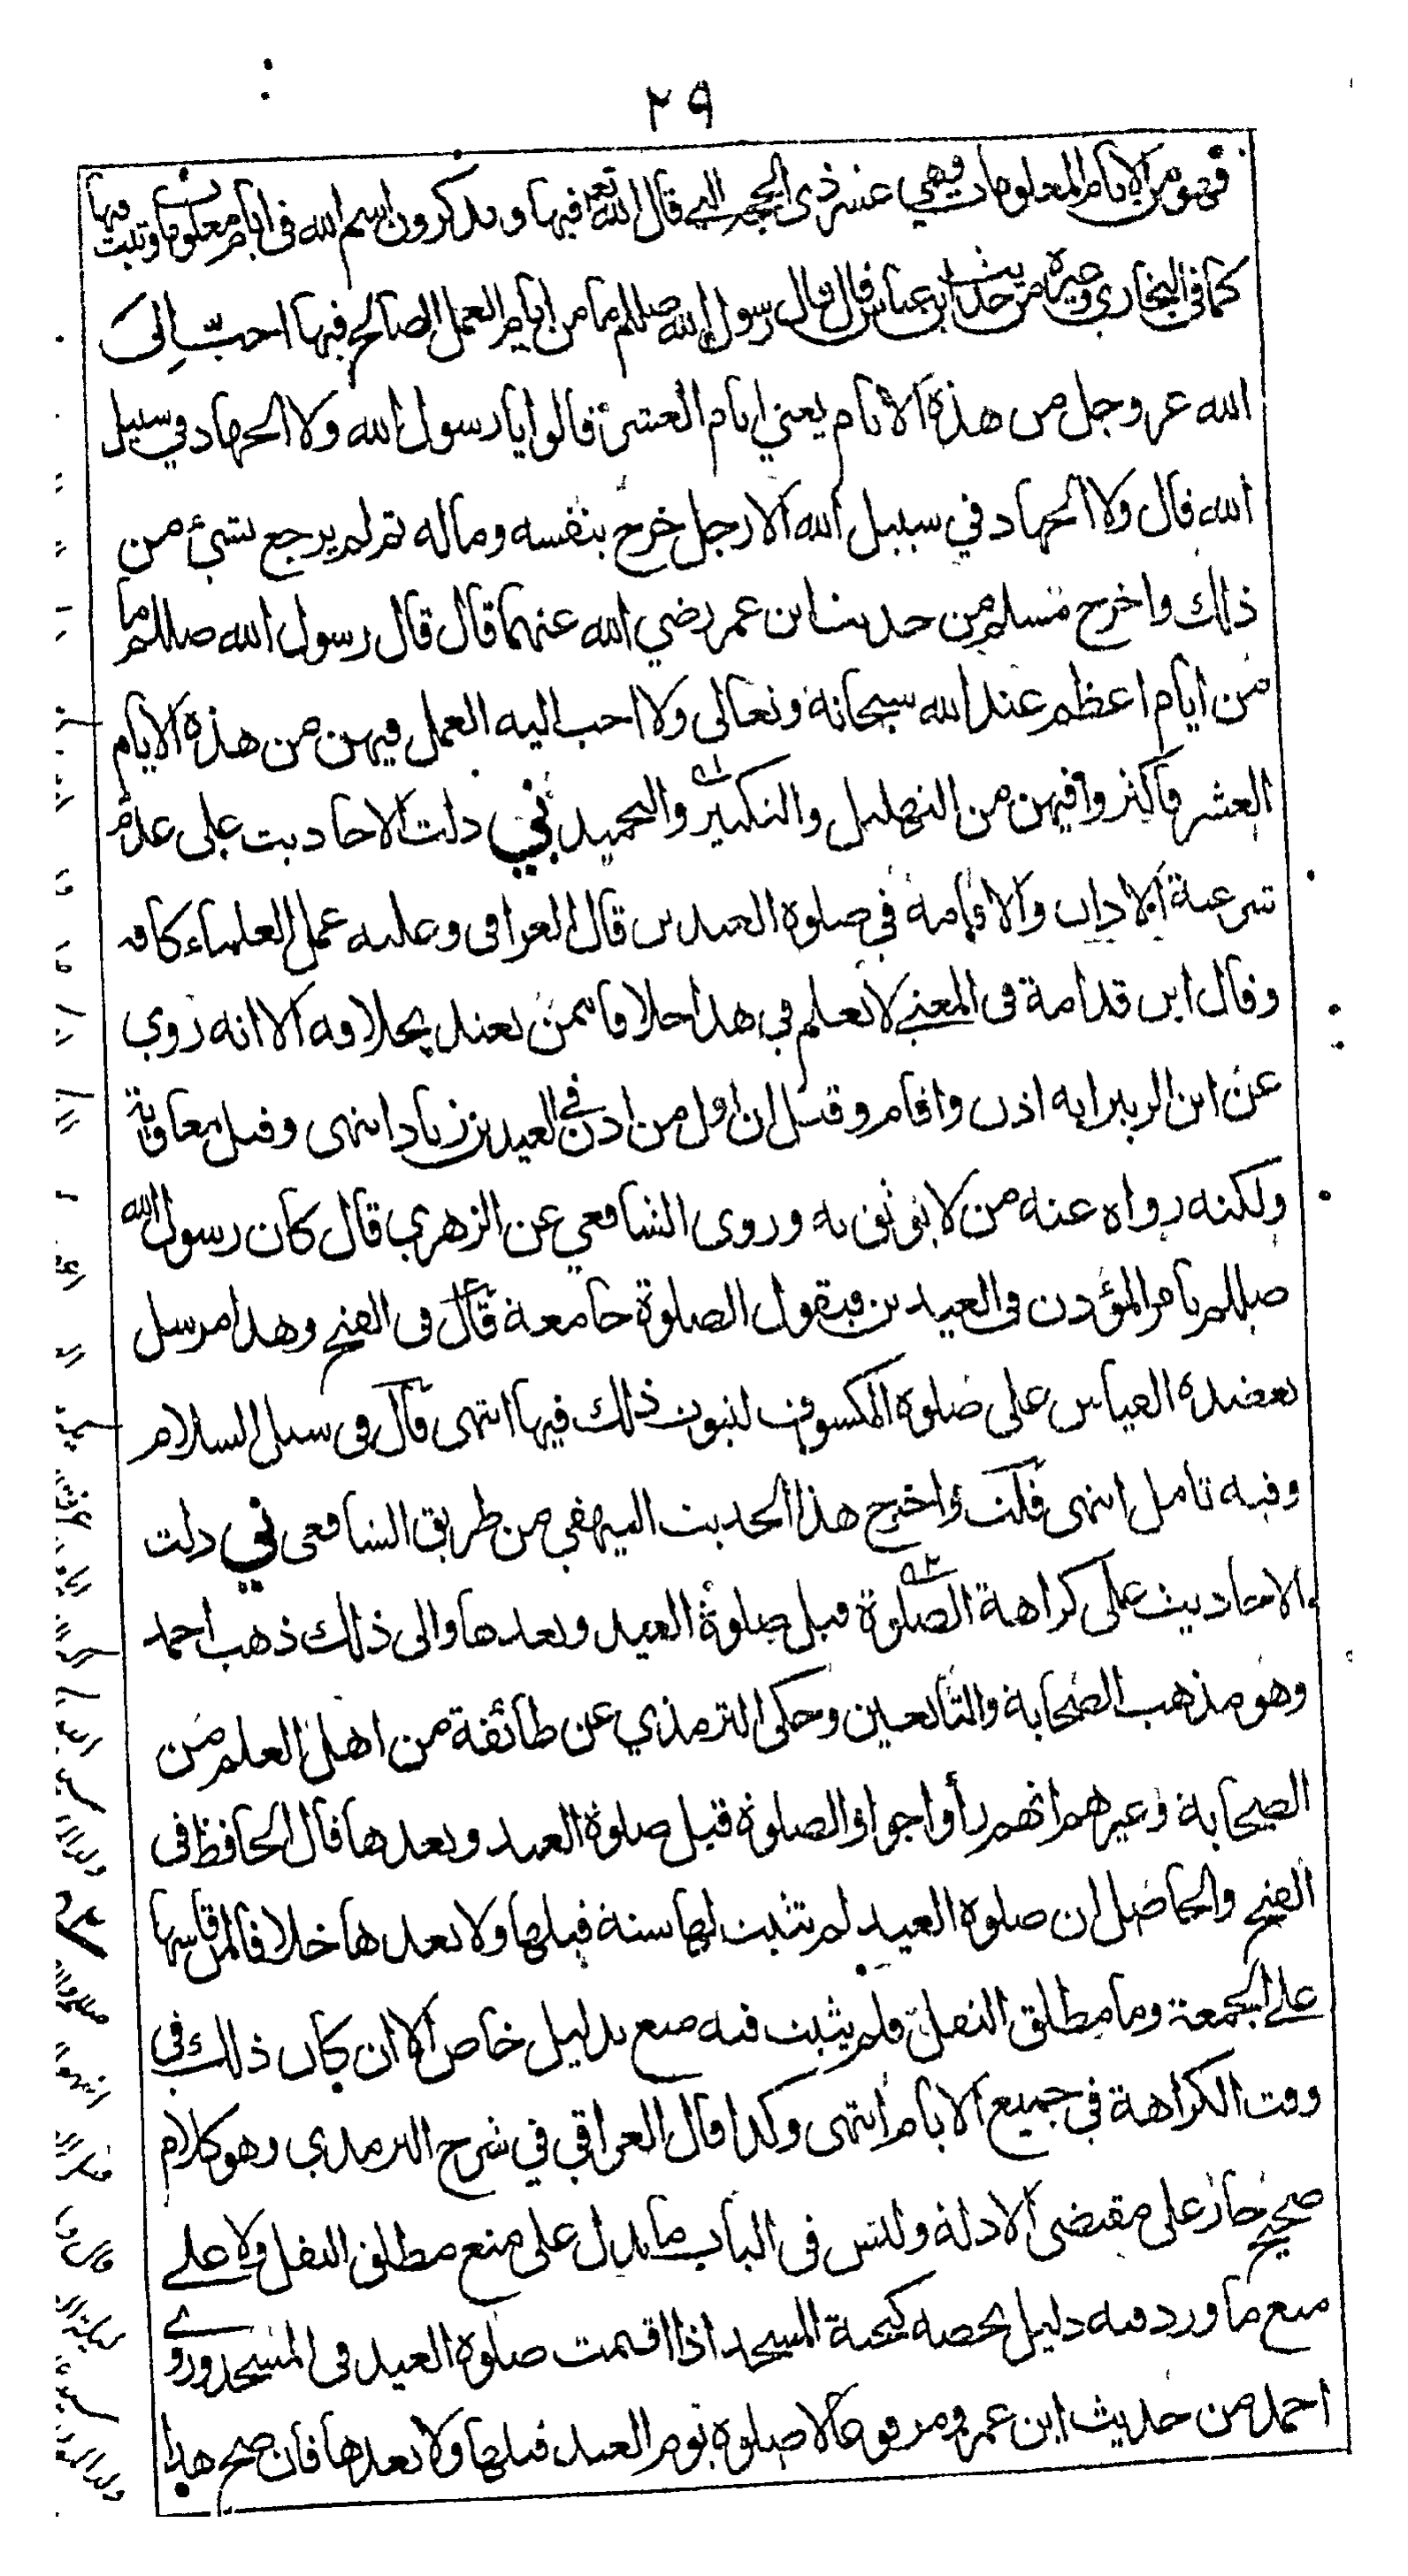 ٢٩
فهو من الايام المعلومات وهي عشر ذي الحجة التي قال الله تعالى فيها ويذكرون اسم الله في ايام معلومات وثبت فيها
كما في البخاري وغيره من حديث ابن عباس قال قال رسول الله صللم ما من ايام العمل الصالح فيها احبّ إلى
الله عز وجل من هذه الايام يعني ايام العشر قالوا يا رسول الله ولا الجهاد في سبيل
الله قال ولا الجهاد في سبيل الله الا رجل خرج بنفسه وماله ثم لم يرجع بشئ من
ذلك واخرج مسلم من حديث ابن عمر رضي الله عنهما قال قال رسول الله صللم ما
من ايام اعظم عند الله سبحانه وتعالى ولا احب اليه العمل فيهن من هذه الايام
العشر فأكثروا فيهن من التهليل والتكبير والتحميد ني دلت الاحاديث على عدم
شرعية الاذان والاقامة في صلوة العيدين قال العراقي وعليه عمل العلماء كافه
وقال ابن قدامة في المغني لا نعلم في هذا خلافا ممن يعتد بخلافه الا انه روي
عن ابن الزبير انه اذن واقام وقيل ان اول من اذن في العيد بن زياد انتهى وقيل معاوية
ولكنه رواه عنه من لا يوثق به وروى الشافعي عن الزهري قال كان رسول الله
صللم يامر المؤذن في العيدين فيقول الصلوة جامعة قال في الفتح وهذا مرسل
يعضده القياس على صلوة الكسوف لثبوت ذلك فيها انتهى قال في سبل السلام
وفيه تامل انتهى قلت واخرج هذا الحديث البيهقي من طريق الشافعي ني دلت
الاحاديث على كراهة الصلوة قبل صلوة العيد وبعدها والى ذلك ذهب احمد
وهو مذهب الصحابة والتابعين وحكى الترمذي عن طائفة من اهل العلم من
الصحابة وغيرهم انهم رأوا جواز الصلوة قبل صلوة العيد وبعدها قال الحافظ في
الفتح والحاصل ان صلوة العيد لم تثبت لها سنة قبلها ولا بعدها خلافا لمن قاسها
على الجمعة وما مطلق النفل فلم يثبت فيه منع بدليل خاص الا ان كان ذلك في
وقت الكراهة في جميع الايام انتهى وكذا قال العراقي في شرح الترمذي وهو كلام
صحيح جار على مقتضى الادلة وليس في الباب ما يدل على منع مطلق النفل ولا على
منع ما ورد فيه دليل يخصه كتحية المسجد اذا اقيمت صلوة العيد في المسجد وروى
احمد من حديث ابن عمرو مرفوعا لا صلوة يوم العيد قبلها ولا بعدها فان صح هذا